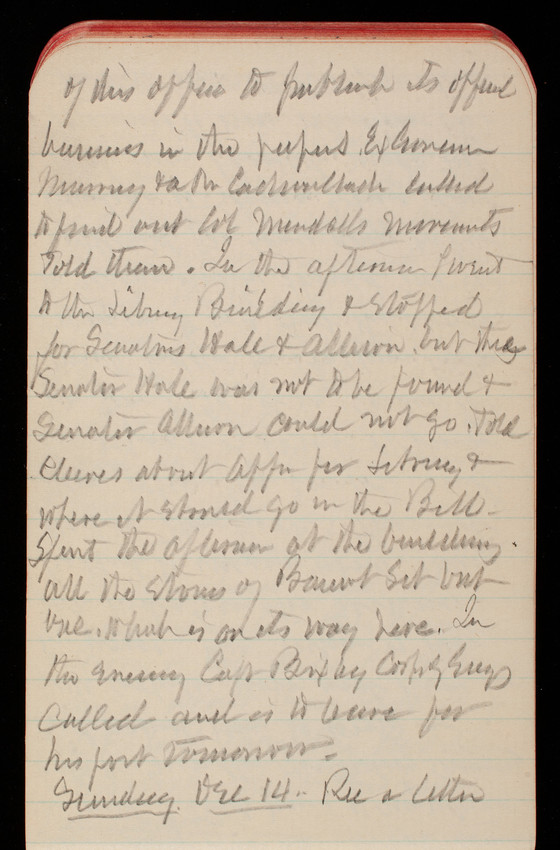 of this office to publish its official
business in the papers. Ex Governor
Murray & a Mr Cadwallader called
to find out Col Mendells movements
Told them. In the afternoon I went
to the Library Building & stopped
for Senators Hale & Allison. but
Senator Hale was not to be found &
Senator Allison could not go. Told
Cleaves about App for Library &
where it should go in the Bill.
Spent the afternoon at the building.
all the stones of Set but
one. which is on its way here. In
the evening Capt Bixby Corps Engs
Called and is to leave for
his post tomorrow.
Sunday. Dec 14. Rec a letter